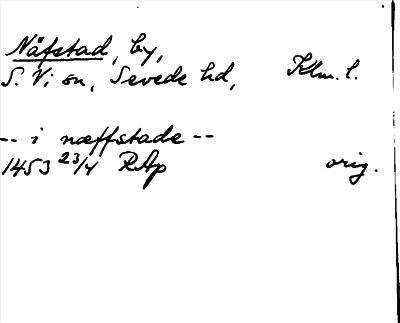 Näfstad, by,
S. Vi sn, Sevede hd, Klm. l.
-- i næffstade --
1453 23/4 RAp orig.